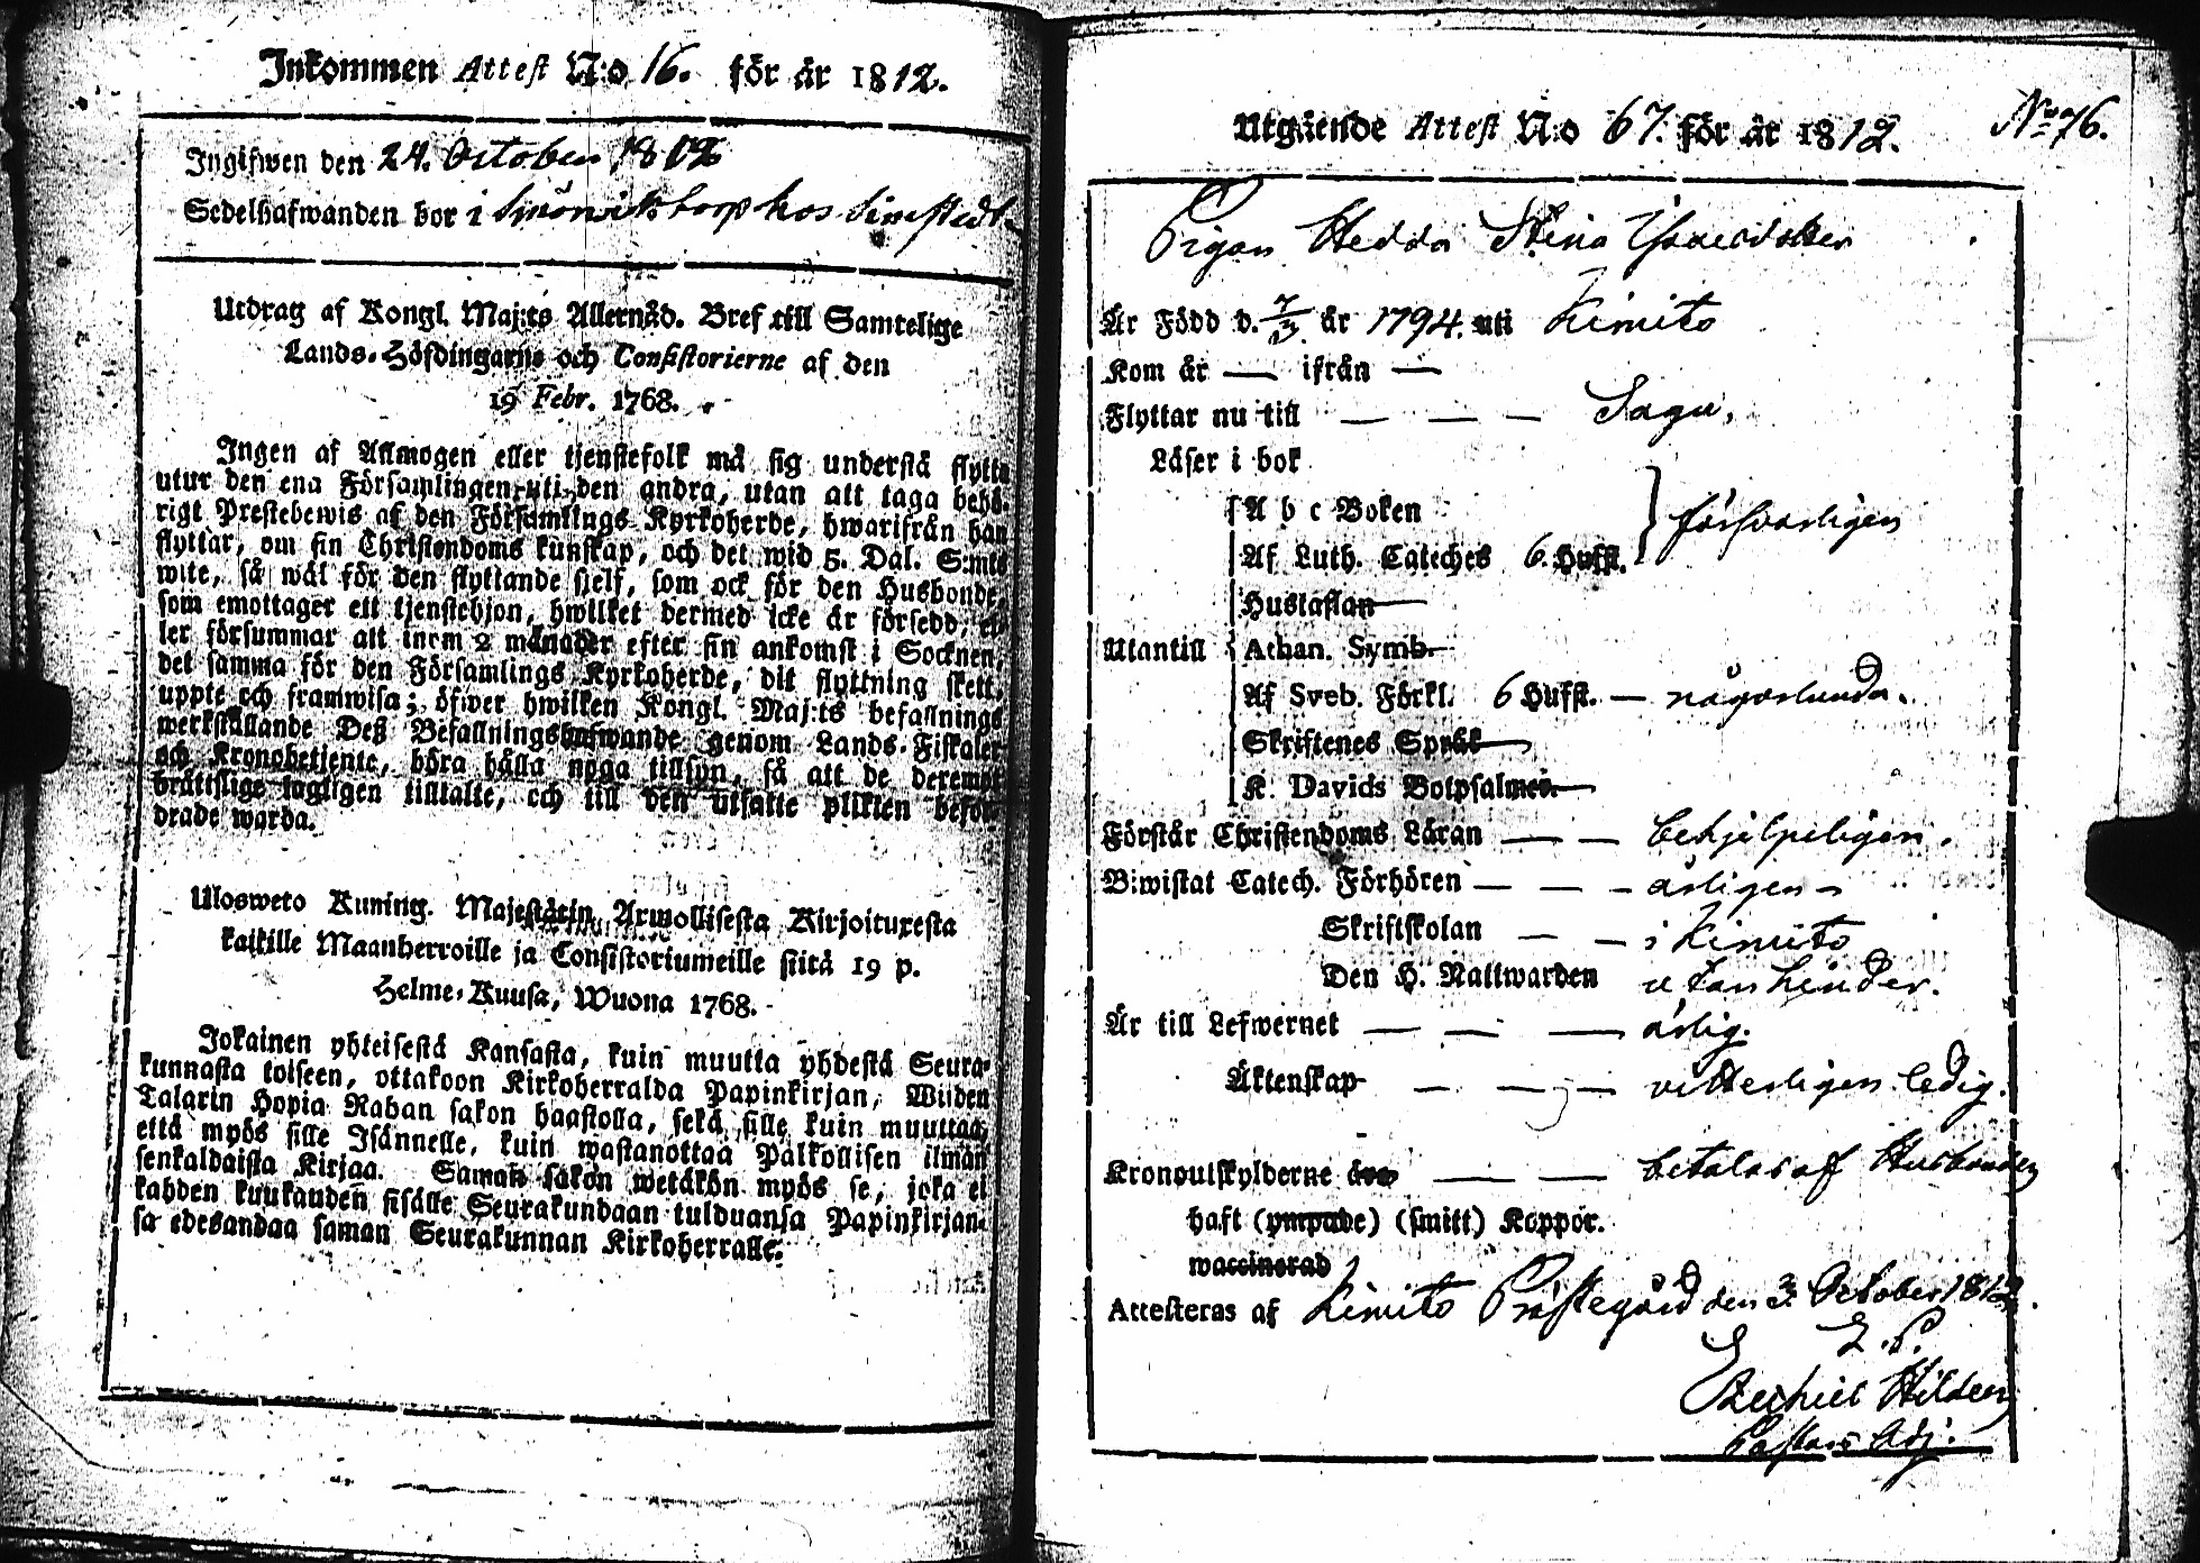 Inkommen Attest N:o 16. för år 1812.
Ingifwen den 24. October 1812
Sedelhafwanden bor i torp hos
Utdrag af Kongl. Maj:ts Allernåd. Bref till Samtelige
Lands-Höfdingarne och Consistorierne af den
19 Febr. 1768.
Ingen af Allmogen eller tjenstefolk må sig understå flytta
utur den ena Församlingen uti den andra, utan att taga behö-
rigt Prestebewis af den Församlings Kyrkoherde, hwarifrån han
flyttar, om sin Christendoms kunskap, och det wid 5. Dal. S:mts
wite, så wäl för den flyttande sjelf, som ock för den Husbonde,
som emottager ett tjenstehjon, hwilket dermed icke är försedd, el-
ler försummar att inom 2 månader efter sin ankomst i Socknen,
det samma för den Församlings Kyrkoherde, dit flyttning skett,
uppte och framwisa; öfwer hwilken Kongl. Maj:ts befallnings
werkställande Deß Befallningshafwande genom Lands-Fiskaler
och Kronobetjente, böra hålla noga tillsyn, så att de deremot
bråttslige lagligen tilltalte, och till den utsatte plikten befor-
drade warda.
Ulosweto Kuning. Majestätin Armollisesta Kirjoituxesta
kaikille Maanherroille ja Consistoriumeille siitä 19 p.
Helme-Kuusa, Wuona 1768.
Jokainen yhteisestä Kansasta, kuin muutta yhdestä Seura-
kunnasta toiseen, ottakoon Kirkoherralda Papinkirjan, Wiiden
Talarin Hopia Rahan sakon haastolla, sekä sille kuin muuttaa,
että myös sille Isännelle, kuin wastanottaa Palkollisen ilman
senkaldaista Kirjaa. Saman sakon wetäkön myös se, joka ei
kahden kuukauden sisälle Seurakundaan tulduansa Papinkirjan-
sa edesandaa saman Seurakunnan Kirkoherralle.
Utgående Attest N:o 67. för år 1812. No 76.
Pigan Hedda Stina
Är Född d. 7/3 år 1794. uti Kimito
Kom år — ifrån —
Flyttar nu till — — — Sagu.
Läser i bok
A b c Boken
försvarligen
Af Luth. Cateches 6. Hufst.
Hustaflan
Utantill Athan. Symb.
Af Sveb. Förkl. 6 Hufst. — någorlunda.
Skriftenes Språk
K. Davids Botpsalmer
Förstår Christendoms Läran — — behjelpeligen.
Biwistat Catech. Förhören — — — årligen
Skriftskolan — — i Kimito
Den H. Nattwarden utan hinder.
Är till Lefwernet — — — ärlig.
Äktenskap — — — vitterligen ledig.
Kronoutskylderne äro — — betalas af Husbonden
haft (ympade) (smitt) Koppor.
waccinerad
Attesteras af Kimito Prästegård den 3. October 1812.
Ezechiel Hildeen
Pastors Adj.